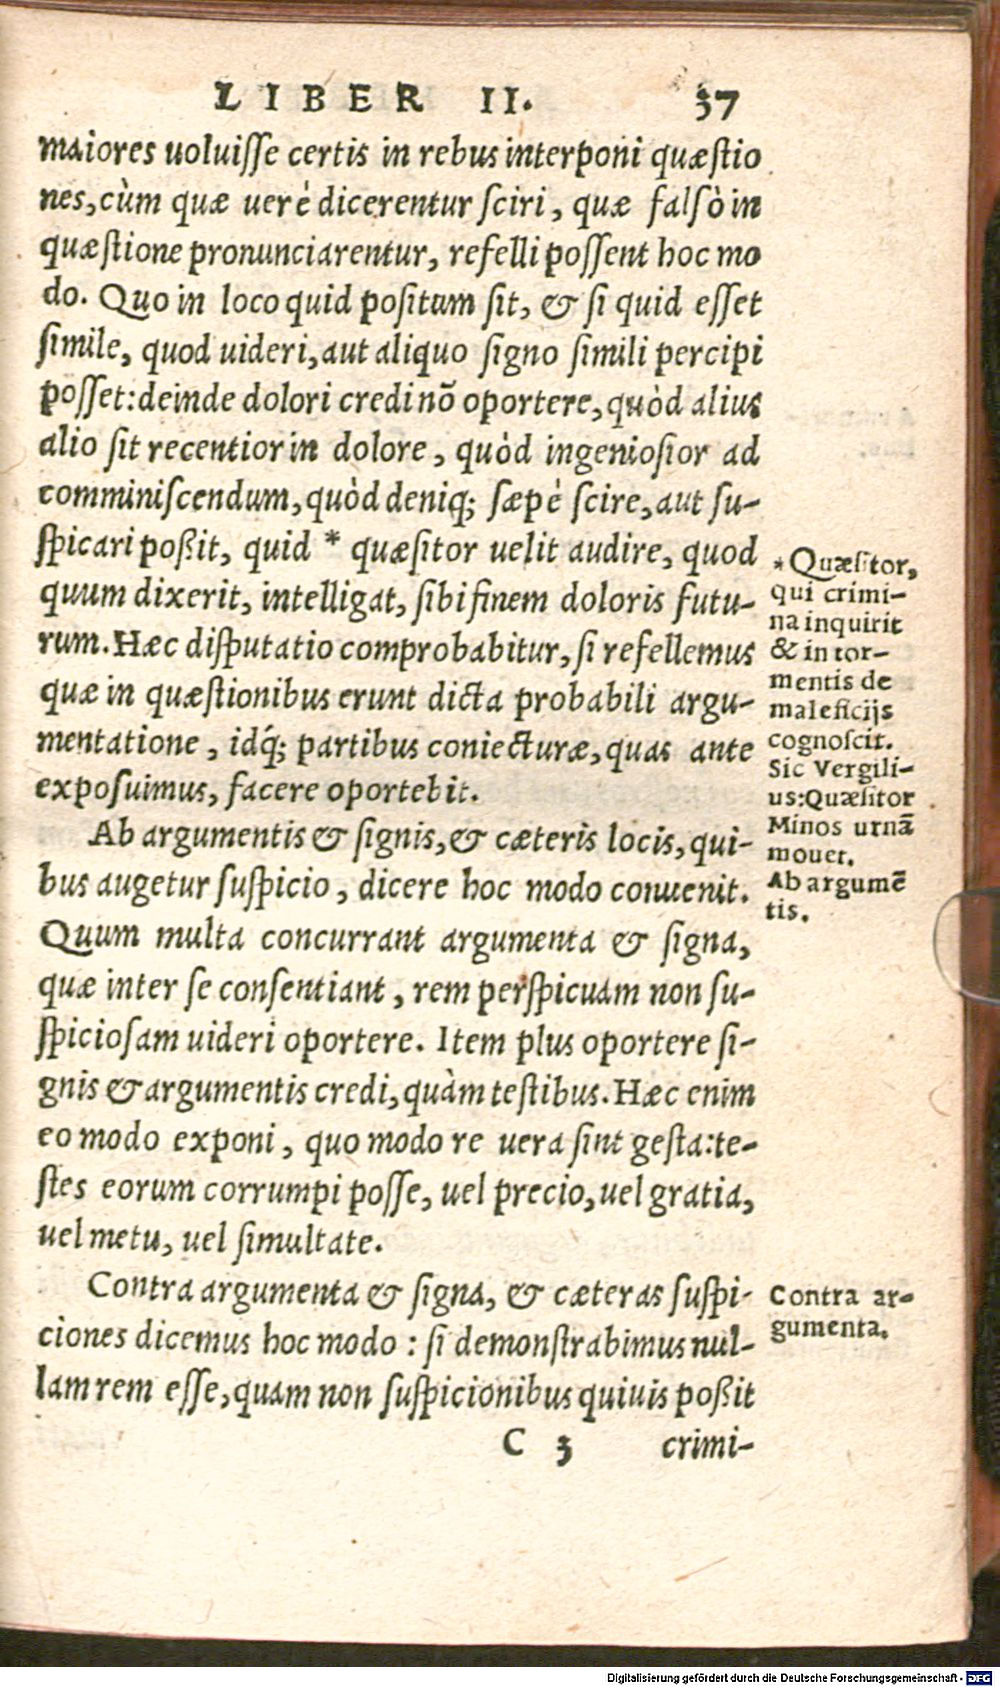 LIBER II. 37
maiores uoluiſſe certis in rebus interponi quæſtio
nes, cùm quæ uerè dicerentur ſciri, quæ falſò in
quæſtione pronunciarentur, refelli poſſent hoc mo
do. Quo in loco quid poſitum ſit, & ſi quid eſſet
ſimile, quod uideri, aut aliquo ſigno ſimili percipi
poſſet: deinde dolori credi nō oportere, quòd alius
alio ſit recentior in dolore, quòd ingenioſior ad
comminiſcendum, quòd deniq; ſæpè ſcire, aut ſu-
ſpicari poßit, quid * quæſitor uelit audire, quod
quum dixerit, intelligat, ſibi finem doloris futu-
rum. Hæc diſputatio comprobabitur, ſi refellemus
quæ in quæſtionibus erunt dicta probabili argu-
mentatione, idq́; partibus coniecturæ, quas ante
expoſuimus, facere oportebit.
* Quæſitor,
qui crimi-
na inquirit
& in tor-
mentis de
maleficijs
cognoſcit.
Sic Vergili-
us: Quæſitor
Minos urnā
mouet.
Ab argumentis & ſignis, & cæteris locis, qui-
bus augetur ſuſpicio, dicere hoc modo conuenit.
Quum multa concurrant argumenta & ſigna,
quæ inter ſe conſentiant, rem perſpicuam non ſu-
ſpicioſam uideri oportere. Item plus oportere ſi-
gnis & argumentis credi, quàm teſtibus. Hæc enim
eo modo exponi, quo modo re uera ſint geſta: te-
ſtes eorum corrumpi poſſe, uel precio, uel gratia,
uel metu, uel ſimultate.
Ab argumē
tis.
Contra argumenta & ſigna, & cæteras ſuſpi-
ciones dicemus hoc modo: ſi demonſtrabimus nul-
lam rem eſſe, quam non ſuſpicionibus quiuis poßit
Contra ar-
gumenta.
C 3 crimi-
Digitalisierung gefördert durch die Deutsche Forschungsgemeinschaft - DFG